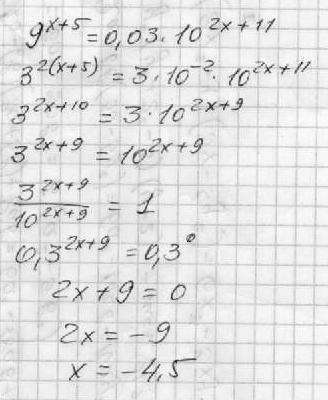 9^{x+5} = 0,03 · 10^{2x+11}
3^{2(x+5)} = 3 · 10^{-2} · 10^{2x+11}
3^{2x+10} = 3 · 10^{2x+9}
3^{2x+9} = 10^{2x+9}
\frac{3^{2x+9}}{10^{2x+9}} = 1
0,3^{2x+9} = 0,3^{0}
2x + 9 = 0
2x = -9
x = -4,5